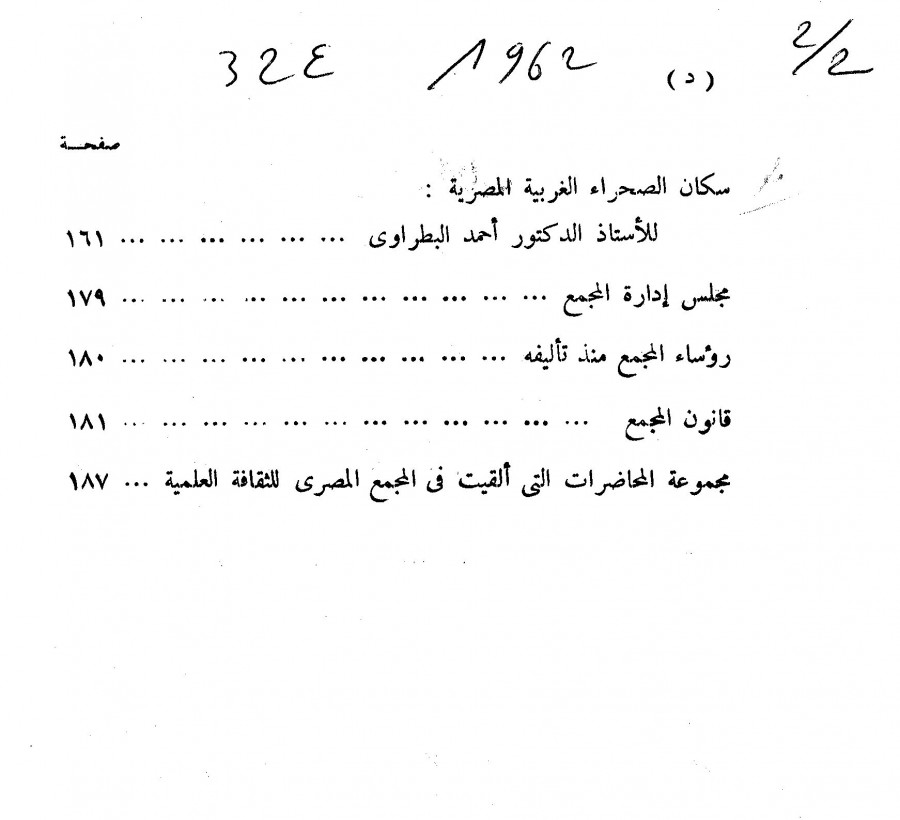 32E 1962 (د) 2/2
صفحة
سكان الصحراء الغربية المصرية :
للأستاذ الدكتور أحمد البطراوى ... ... ... ... ... ... ١٦١
مجلس إدارة المجمع ... ... ... ... ... ... ... ... ... ... ... ١٧٩
رؤساء المجمع منذ تأليفه ... ... ... ... ... ... ... ... ... ... ١٨٠
قانون المجمع ... ... ... ... ... ... ... ... ... ... ... ... ١٨١
مجموعة المحاضرات التى ألقيت فى المجمع المصرى للثقافة العلمية ... ١٨٧